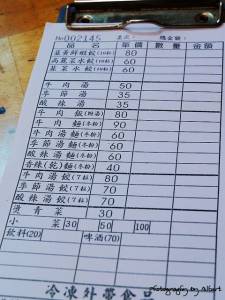 No 002145 桌次: 總金額:
品名 單價 數量 金額
韭黃鮮蝦餃(10粒) 80
高麗菜水餃(10粒) 60
韭菜水餃(10粒) 60
牛肉湯 50
季節湯 35
酸辣湯 35
牛肉飯(附湯) 80
牛肉麵(冬粉) 90
牛肉湯麵(冬粉) 60
季節湯麵(冬粉) 60
酸辣湯麵(冬粉) 60
炸醬(乾)麵(冬粉) 40
牛肉湯餃(7粒) 80
季節湯餃(7粒) 70
酸辣湯餃(7粒) 70
燙青菜 30
小菜 30 50 100
飲料(20) 啤酒(70)
冷凍外帶食品
photography by Albert